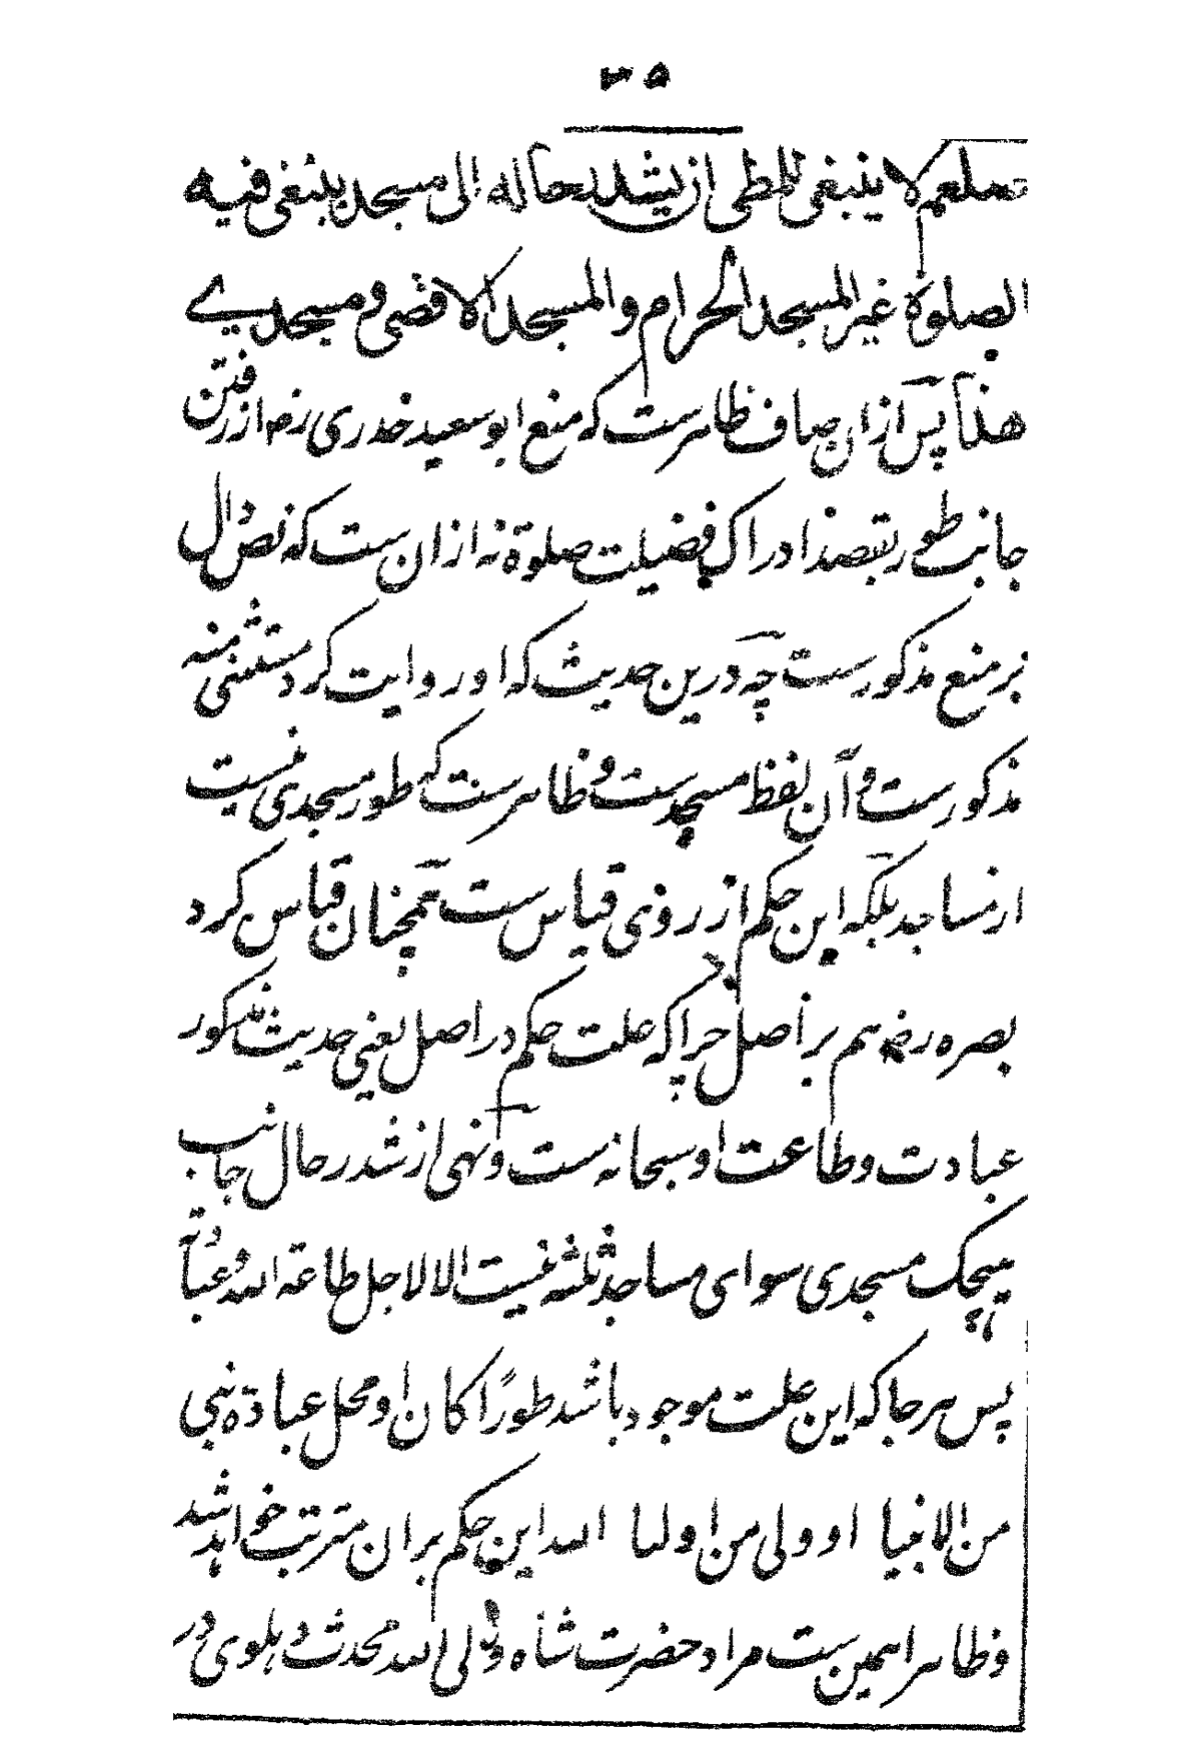 ٢٥
صلعم لا ينبغى للمطى ان يشد رحاله الى مسجد يبتغى فيه
الصلوة غير المسجد الحرام والمسجد الاقصى و مسجدے
هذا پس ازان صاف ظاہرست کہ منع ابو سعید خدری رضہ از رفتن
جانب طور بقصد ادراک فضیلت صلوۃ نہ ازان ست کہ نص دال
بر منع مذکورست چہ درین حدیث کہ او روایت کرد مستثنی منہ
مذکورست و آن لفظ مسجدست و ظاہرست کہ طور مسجدی نیست
از مساجد بلکہ این حکم از روی قیاس ست ہمچنان قیاس کرد
بصرہ رضہ ہم بر اصل چرا کہ علت حکم در اصل یعنی حدیث مذکور
عبادت و طاعت او سبحانہ ست و نہی از شد رحال جانب
ہیچک مسجدی سوای مساجد ثلثہ نیست الا لاجل طاعۃ اللہ و عبادتہ
پس ہر جا کہ این علت موجود باشد طورًا کان او محل عبادۃ نبی
من الانبیا او ولی من اولیا اللہ این حکم بران مترتب خواہد شد
و ظاہرا ہمین ست مراد حضرت شاہ ولی اللہ محدث دہلوی در